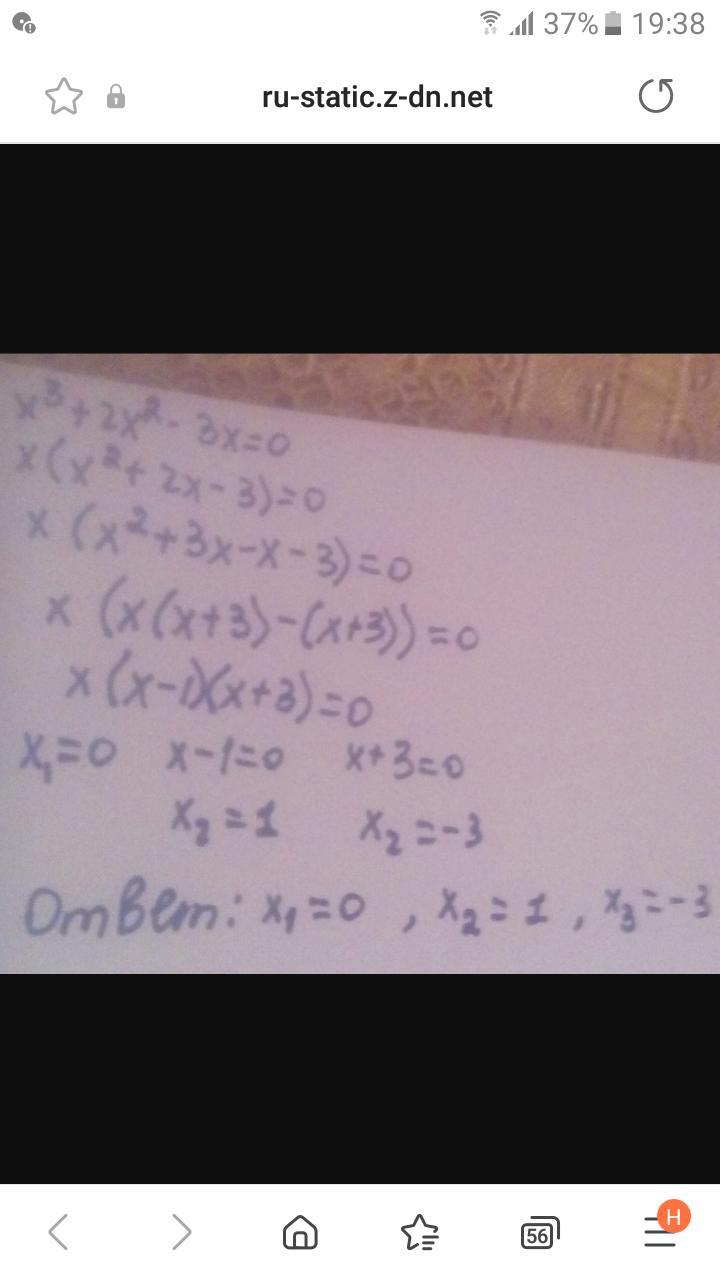 37% 19:38
ru-static.z-dn.net
x³+2x²-3x=0
x(x²+2x-3)=0
x(x²+3x-x-3)=0
x(x(x+3)-(x+3))=0
x(x-1)(x+3)=0
x₁=0 x-1=0 x+3=0
x₂=1 x₂=-3
Ответ: x₁=0, x₂=1, x₃=-3
56 H